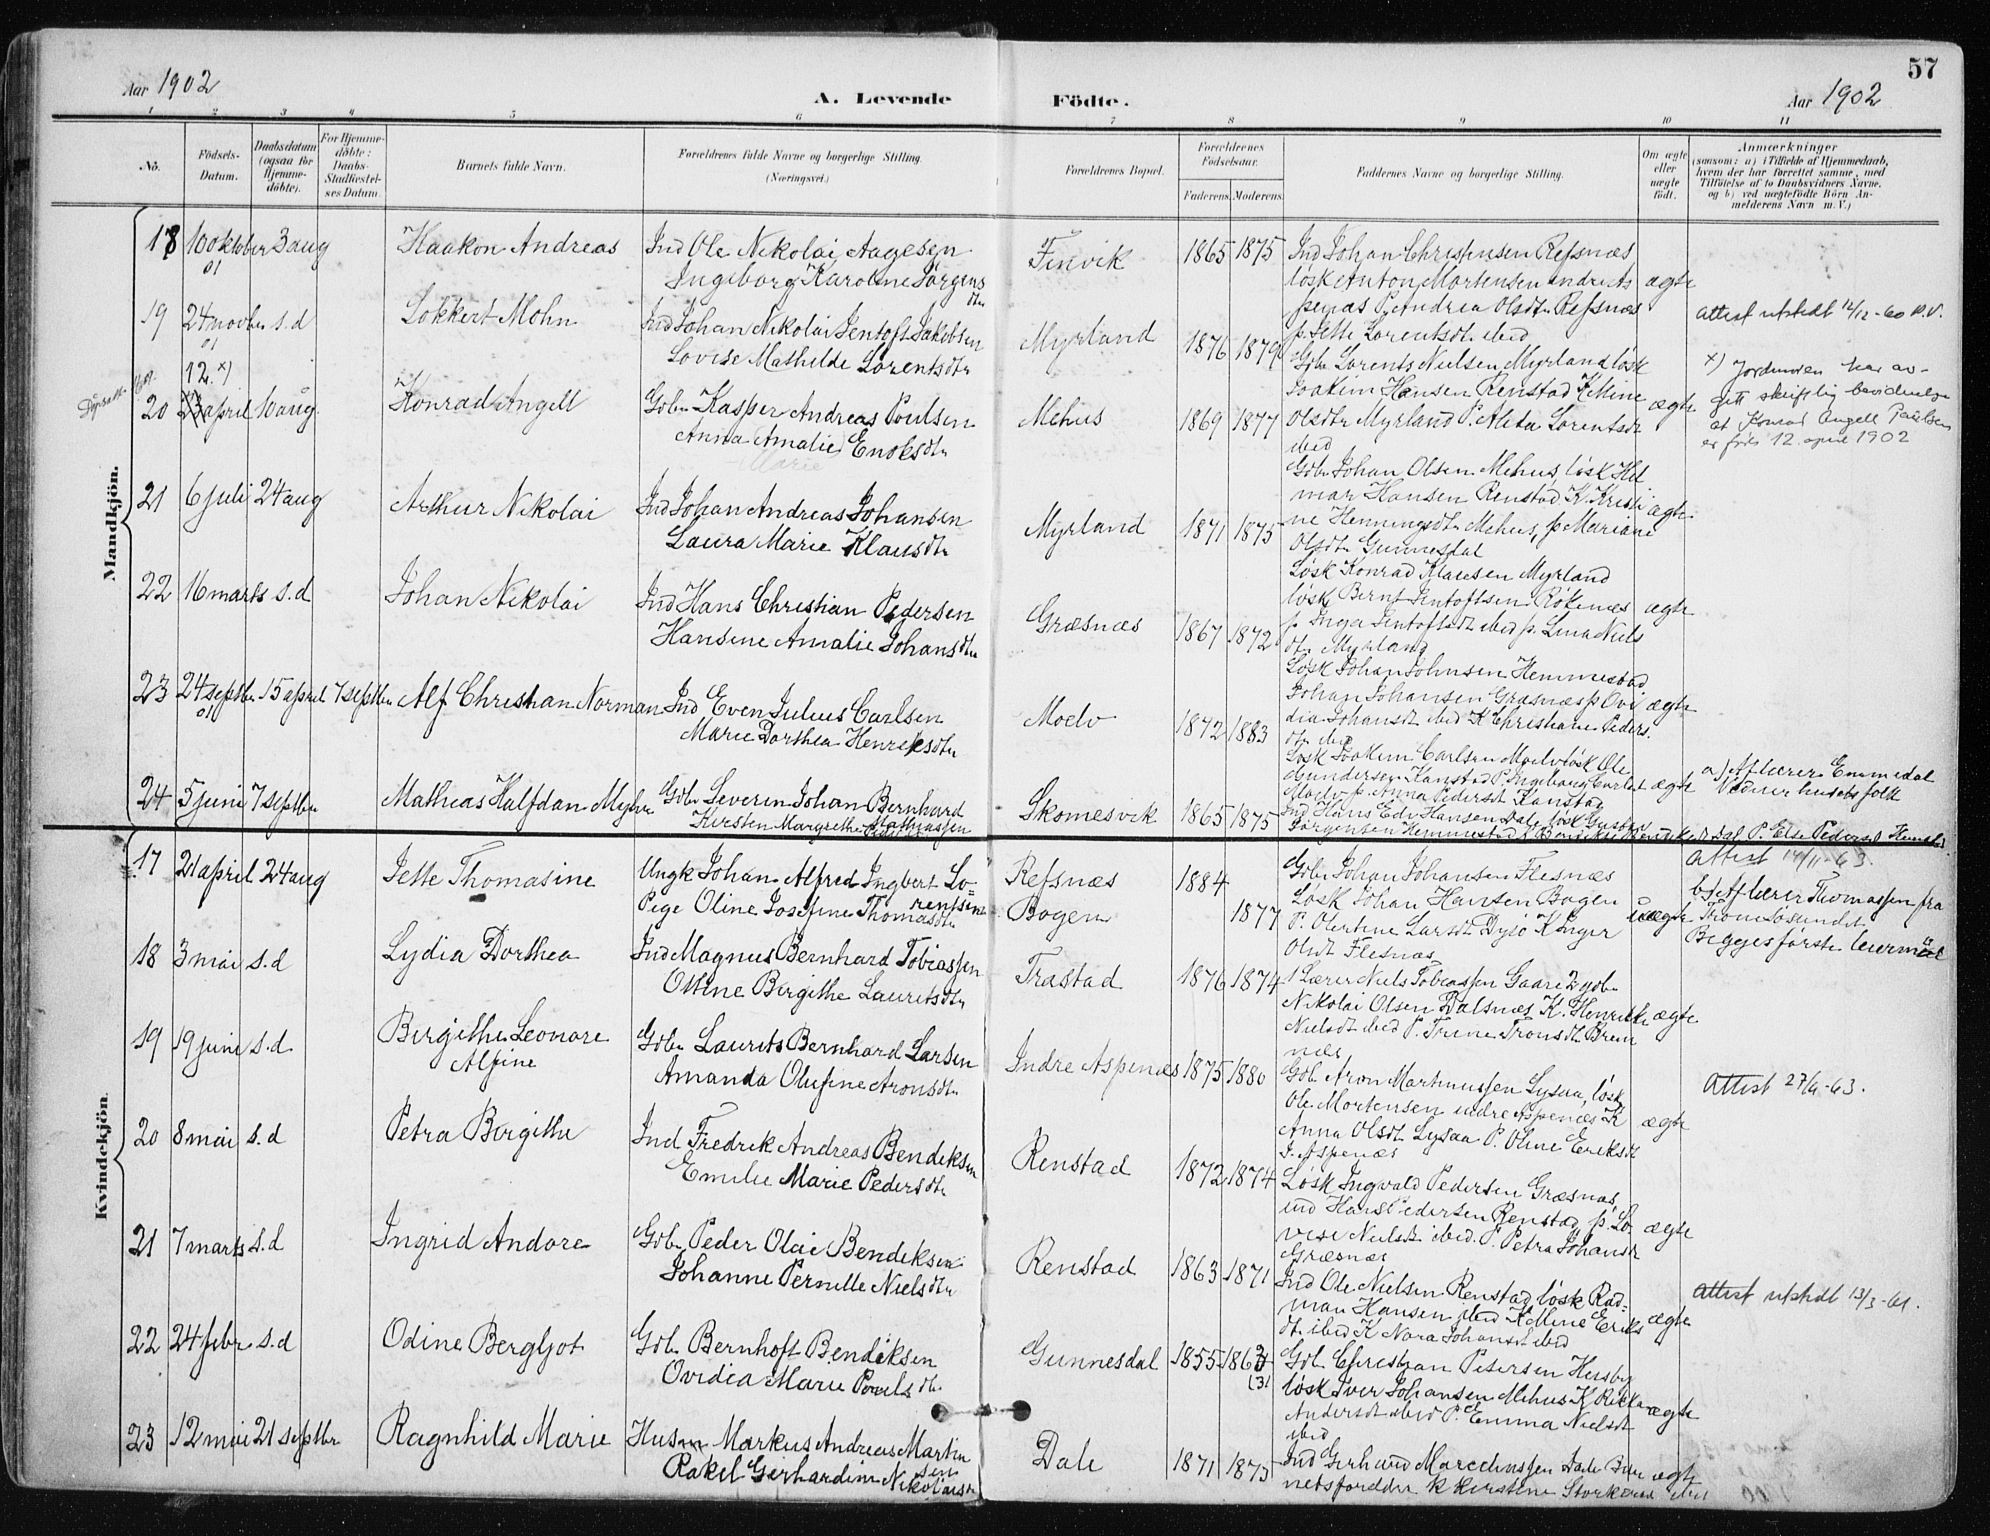 57
Aar 1902
A. Levende Födte.
Aar 1902
1 2 3 4 5 6 7 8 9 10 11
No.
Födsels-Datum.
Daabsdatum (ogsaa for Hjemme-döbte).
For Hjemme-döbte: Daabs-Stadfæstel-ses Datum.
Barnets fulde Navn.
Forældrenes fulde Navne og borgerlige Stilling.
(Næringsvei.)
Forældrenes Bopæl.
Forældrenes Födselsaar.
Faderens. Moderens.
Faddernes Navne og borgerlige Stilling.
Om ægte eller uægte födt.
Anmærkninger
(saasom: a) i Tilfælde af Hjemmedaab,
hvem der har forrettet samme, med
Tilföielse af to Daabsvidners Navne,
og b) ved uægtefödte Börn An-
melderens Navn m. V.)
Mandkjön.
18 10 oktober 01 3 aug Haakon Andreas Ind Ole Nikolai Aagesen
Ingeborg Karoline Jörgensdtr
Finvik 1865 1875 Ind Johan Christensen Refsnæs
løsk Anton Mortensen
P. Andrea Olsdtr Refsnæs
p. Jette Lorentsdt ibid
ægte
19 24 novbr 01 s.d Lokkert Mohn Ind Johan Nikolai Jentoft Jakobsen
Lovise Mathilde Lorentsdtr
Myrland 1876 1879 Gbr Lorents Nielsen Myrland løsk
Joakim Hansen Renstad K Mine
Olsdtr Myrland P. Aleta Lorentsdt
ibid
ægte
attest utstedt 12/12-60 P.V.
12. x)
20 april 10 aug. Konrad Angell Gbr Kasper Andreas Poulsen
Anna Amalie Enoksdtr
Marie
Mehus 1869 1877 Gbr Johan Olsen Mehus, løsk Hil
mar Hansen Renstad K. Kristi
ne Henningsdtr Mehus, p Mariane
Olsdtr Gunnesdal
ægte
x) Jordmoren har av-
gitt skriftlig bevidnelse
at Konrad Angell Paulsen
er født 12. april 1902
21 6 juli 24 aug Arthur Nikolai Ind Johan Andreas Johansen
Laura Marie Klausdtr
Myrland 1871 1875 Løsk Konrad Klausen Myrland
løsk Bernt Jentoftsen Rökenæs
p Inga Jentoftsdt ibid p. Lina Niels
dtr Myrland
ægte
22 16 marts s.d Johan Nikolai Ind Hans Christian Pedersen
Hansine Amalie Johansdtr
Græsnæs 1867 1872 Løsk Johan Johnsen Hemmestad
Johan Johansen Græsnæs p Ovi
dia Johansdt ibid K Christiane Peders
dtr ibid
ægte
23 24 septbr 01 15 april 7 septbr Alf Christian Norman Ind Even Julius Carlsen
Marie Dorthea Henriksdtr
Moelv 1872 1883 Løsk Joakim Carlsen Moelv løsk Ole
Gundersen Kanstad P. Ingeborg Carlsdt
Moelv p. Anna Pedersdt Kanstad
ægte
a) Af lærer Emmedal
Vidner husets folk
24 5 juni 7 septbr Mathias Halfdan Meyer Gbr Severin Johan Bernhard
Mathiassen
Kirsten Margrethe
Skomesvik 1865 1875 Ind Hans Edv Hansen Dale løsk Gustav
Jörgensen Hemmestad Dal P. Else Pedersd Hemstad
Kvindekjön.
17 21 april 24 aug Jette Thomasine Ungk Johan Alfred Ingbert Lo=
rentsen
Pige Oline Josefine Thomasdtr
Refsnæs 1884
Bogen 1877
Gbr Johan Johansen Flesnæs
Løsk Johan Hansen Bogen
P. Olerhne Larsdt Dysö K Inger
Olsdt Flesnæs
uægte
attest 14/11-63.
b) Af lærer Thomassen fra
Tromsösundet
Begges første leiermål
18 3 mai s.d Lydia Dorthea Ind Magnus Bernhard Tobiassen
Otine Birgithe Lauritsdtr
Trastad 1876 1874 1 Lærer Niels Tobiassen Gaare 2 gbr
Nikolai Olsen Dalsnæs K. Henrikke
Nielsdt ibid P. Trine Tronsdt Brem
næs
ægte
19 19 juni s.d Birgithe Leonore
Alfine
Gbr Laurits Bernhard Larsen
Amanda Olufine Aronsdtr
Indre Aspenæs 1875 1880 Gbr Aron Martinussen Lysaa, løsk
Ole Mortensen indre Aspenæs K
Anna Olsdt Lysaa P. Oline Eriksdt
I. Aspenæs
ægte
attest 27/9-63.
20 8 mai s.d Petra Birgithe Ind Fredrik Andreas Bendiksen
Emilie Marie Pedersdtr
Renstad 1872 1874 Løsk Ingvald Pedersen Græsnæs,
ind Hans Pedersen Renstad p. Lo
vise Nielsdt ibid. P. Petra Johansdt
Græsnæs
ægte
21 7 marts s.d Ingrid Andore Gbr Peder Olai Bendiksen
Johanne Pernille Nielsdtr
Renstad 1863 1871 Ind Ole Nielsen Renstad løsk Rad=
man Hansen ibid K Mine Eriks
dtr ibid K Nora Johansdt ibid
ægte
attest utstedt 13/3-61.
22 24 febr s.d Odine Bergljot Gbr Bernhoft Bendiksen
Ovidia Marie Poulsdtr
Gunnesdal 1855 186 Gbr Christian Petersen Husby
løsk Iver Johansen Mehus K Rikka
Andersdt ibid P. Emma Nielsdt
ibid
ægte
23 12 mai 21 septbr Ragnhild Marie Husm Markus Andreas Martin
sen
Rakel Gerhardine Nikolaisdtr
Dale 1871 1875 Ind Gerhard Marcelinssen Dale
K Kirstine ibid
ægte